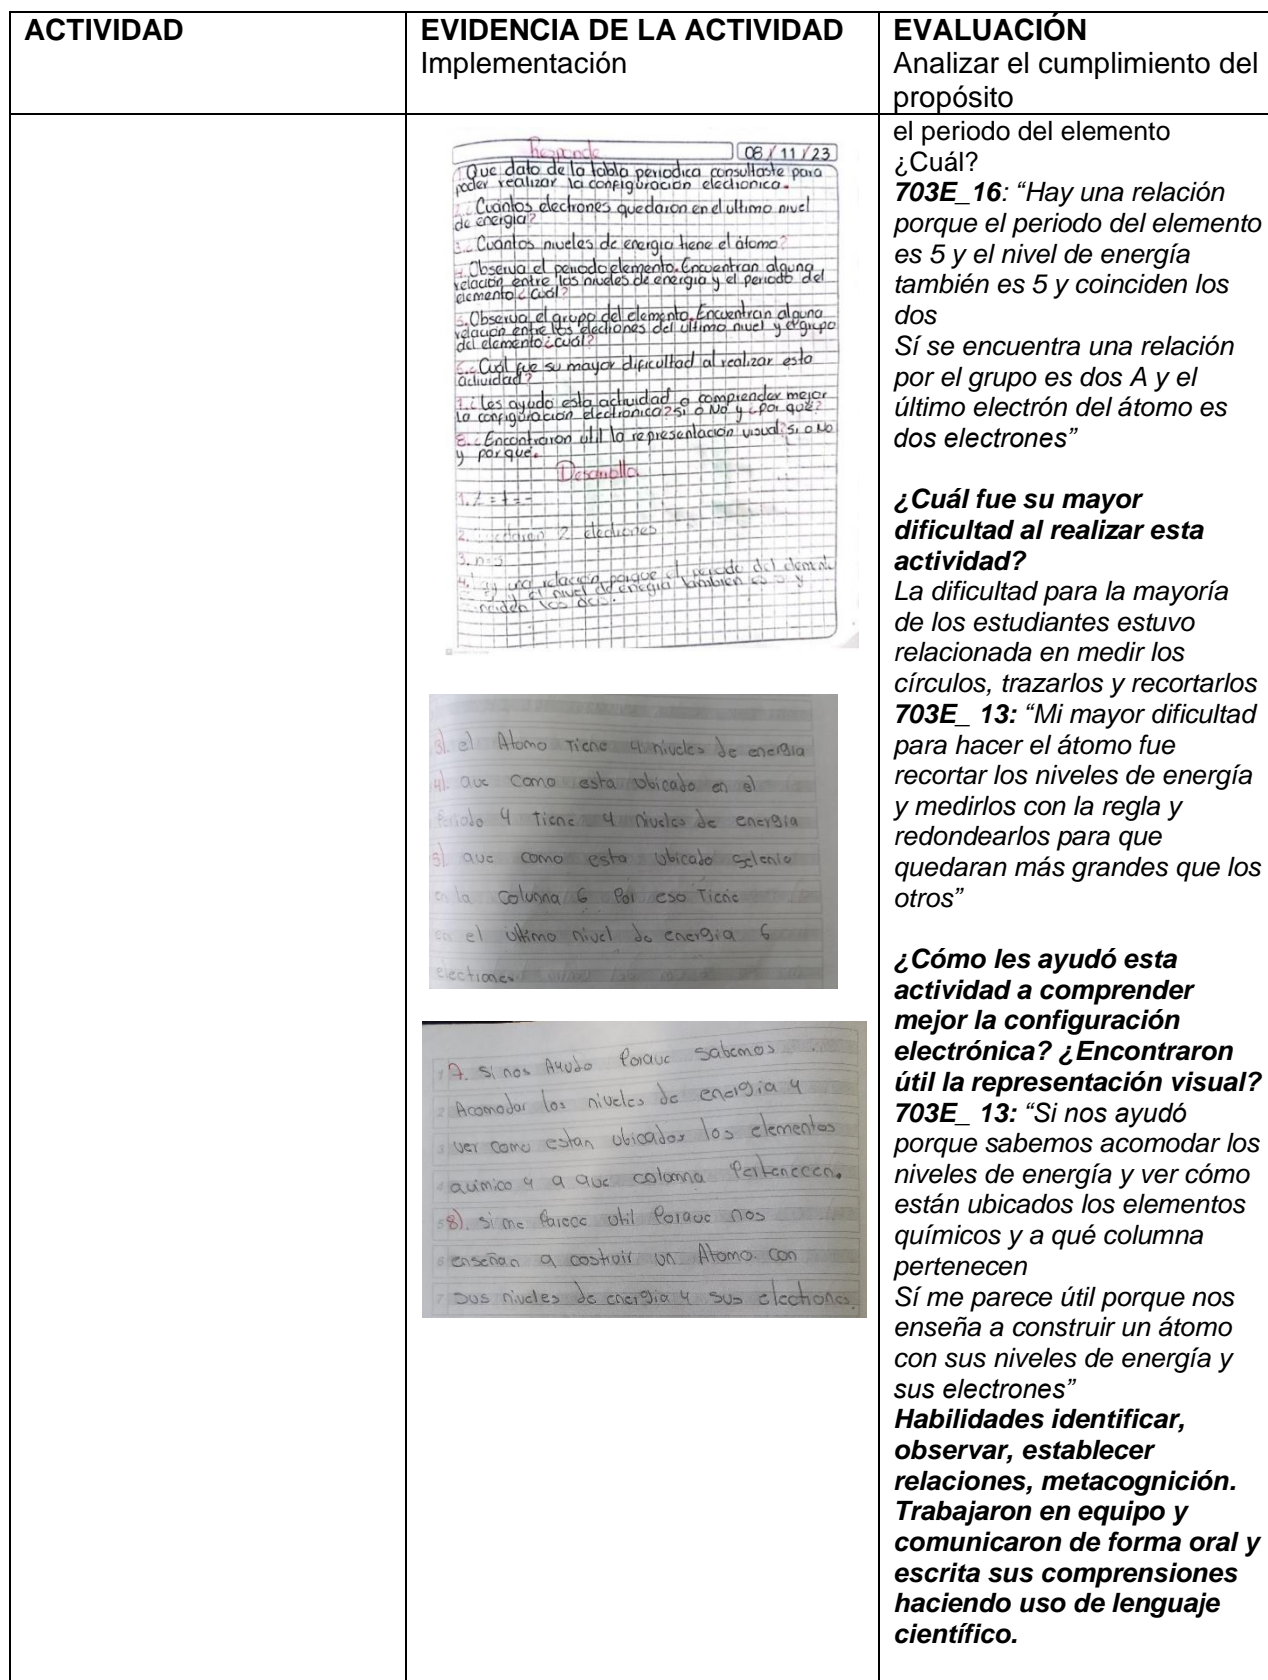 ACTIVIDAD
EVIDENCIA DE LA ACTIVIDAD
Implementación
EVALUACIÓN
Analizar el cumplimiento del
propósito
Responde
08 / 11 / 23
1. Que dato de la tabla periodica consultaste para
poder realizar la configuración electronica.
2. ¿Cuántos electrones quedaron en el ultimo nivel
de energia?
3. ¿Cuántos niveles de energia tiene el átomo?
4. Observa el periodo elemento. Encuentran alguna
relación entre los niveles de energia y el periodo del
elemento ¿Cuál?
5. Observa el grupo del elemento. Encuentran alguna
relación entre los electrones del ultimo nivel y el grupo
del elemento ¿cuál?
6. ¿Cuál fue su mayor dificultad al realizar esta
actividad?
7. ¿Les ayudo esta actividad a comprender mejor
la configuración electronica? si o No y ¿por qué?
8. ¿Encontraron util la representación visual? si o No
y por que.
Desarrollo
1. Z = + = -
2. 2 electrones
3. n=5
4. una relación porque el periodo del elemento
y el nivel de energia tambien es 5 y
los dos.
3). el Atomo Tiene 4 niveles de energia
4). que como esta ubicado en el
Periodo 4 Tiene 4 niveles de energia
5). que como esta ubicado selenio
en la columna 6 Por eso Tiene
en el ultimo nivel de energia 6
electrones
1 7. Si nos Ayudo Porque sabemos
2 Acomodar los niveles de energia y
3 ver como estan ubicados los elementos
4 quimico y a que colomna Pertenecen.
5 8). si me Parece util Porque nos
6 enseñan a costruir un Atomo con
7 sus niveles de energia y sus electrones.
el periodo del elemento
¿Cuál?
703E_16: “Hay una relación
porque el periodo del elemento
es 5 y el nivel de energía
también es 5 y coinciden los
dos
Sí se encuentra una relación
por el grupo es dos A y el
último electrón del átomo es
dos electrones”
¿Cuál fue su mayor
dificultad al realizar esta
actividad?
La dificultad para la mayoría
de los estudiantes estuvo
relacionada en medir los
círculos, trazarlos y recortarlos
703E_ 13: “Mi mayor dificultad
para hacer el átomo fue
recortar los niveles de energía
y medirlos con la regla y
redondearlos para que
quedaran más grandes que los
otros”
¿Cómo les ayudó esta
actividad a comprender
mejor la configuración
electrónica? ¿Encontraron
útil la representación visual?
703E_ 13: “Si nos ayudó
porque sabemos acomodar los
niveles de energía y ver cómo
están ubicados los elementos
químicos y a qué columna
pertenecen
Sí me parece útil porque nos
enseña a construir un átomo
con sus niveles de energía y
sus electrones”
Habilidades identificar,
observar, establecer
relaciones, metacognición.
Trabajaron en equipo y
comunicaron de forma oral y
escrita sus comprensiones
haciendo uso de lenguaje
científico.